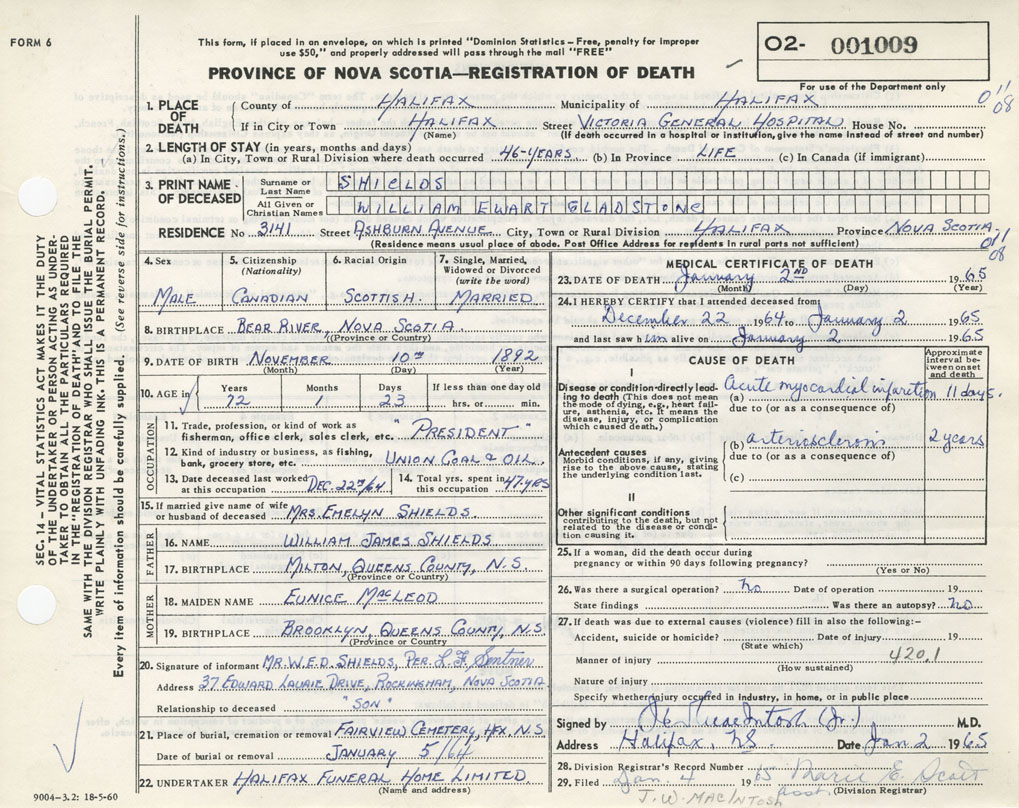 FORM 6
This form, if placed in an envelope, on which is printed "Dominion Statistics – Free, penalty for improper
use $50," and properly addressed will pass through the mail "FREE"
PROVINCE OF NOVA SCOTIA—REGISTRATION OF DEATH
O2- 001009
For use of the Department only
1. PLACE OF DEATH County of HALIFAX Municipality of HALIFAX 011/08
If in City or Town HALIFAX Street VICTORIA GENERAL HOSPITAL House No.
(Name) (If death occurred in a hospital or institution, give the name instead of street and number)
2. LENGTH OF STAY (in years, months and days)
(a) In City, Town or Rural Division where death occurred 46-YEARS (b) In Province LIFE (c) In Canada (if immigrant)
3. PRINT NAME OF DECEASED Surname or Last Name SHIELDS
All Given or Christian Names WILLIAM EWART GLADSTONE
RESIDENCE No 3141 Street ASHBURN AVENUE City, Town or Rural Division HALIFAX Province NOVA SCOTIA
(Residence means usual place of abode. Post Office Address for residents in rural parts not sufficient) 011/08
4. Sex MALE
5. Citizenship (Nationality) CANADIAN
6. Racial Origin SCOTTISH.
7. Single, Married, Widowed or Divorced (write the word) MARRIED
8. BIRTHPLACE BEAR RIVER, NOVA SCOTIA.
(Province or Country)
9. DATE OF BIRTH NOVEMBER 10TH 1892
(Month) (Day) (Year)
10. AGE in Years 72 Months 1 Days 23 If less than one day old hrs. or min.
OCCUPATION
11. Trade, profession, or kind of work as fisherman, office clerk, sales clerk, etc. "PRESIDENT"
12. Kind of industry or business, as fishing, bank, grocery store, etc. UNION COAL & OIL.
13. Date deceased last worked at this occupation DEC. 22ND/64
14. Total yrs. spent in this occupation 47-YRS
15. If married give name of wife or husband of deceased MRS. EMELYN SHIELDS.
FATHER
16. NAME WILLIAM JAMES SHIELDS
17. BIRTHPLACE MILTON, QUEENS COUNTY, N.S.
(Province or Country)
MOTHER
18. MAIDEN NAME EUNICE MACLEOD
19. BIRTHPLACE BROOKLYN, QUEENS COUNTY, N.S.
(Province or Country)
20. Signature of informant MR. W.E.D. SHIELDS, PER. L.F.
Address 37 EDWARD LAURIE DRIVE, ROCKINGHAM, NOVA SCOTIA
Relationship to deceased "SON"
21. Place of burial, cremation or removal FAIRVIEW CEMETERY, HFX, N.S.
Date of burial or removal JANUARY 5/64
22. UNDERTAKER HALIFAX FUNERAL HOME LIMITED
(Name and address)
MEDICAL CERTIFICATE OF DEATH
23. DATE OF DEATH January 2ND 1965
(Month) (Day) (Year)
24. I HEREBY CERTIFY that I attended deceased from
December 22 1964 to January 2 1965
and last saw him alive on January 2 1965
CAUSE OF DEATH
Approximate interval between onset and death
I
Disease or condition directly leading to death (This does not mean the mode of dying, e.g., heart failure, asthenia, etc. It means the disease, injury, or complication which caused death.)
(a) Acute myocardial infarction 11 days.
due to (or as a consequence of)
(b) arteriosclerosis 2 years
due to (or as a consequence of)
(c)
Antecedent causes
Morbid conditions, if any, giving rise to the above cause, stating the underlying condition last.
II
Other significant conditions
contributing to the death, but not related to the disease or condition causing it.
25. If a woman, did the death occur during
pregnancy or within 90 days following pregnancy?
(Yes or No)
26. Was there a surgical operation? No Date of operation 19
State findings Was there an autopsy? No
27. If death was due to external causes (violence) fill in also the following:–
Accident, suicide or homicide? Date of injury 19
(State which)
Manner of injury 420.1
(How sustained)
Nature of injury
Specify whether injury occurred in industry, in home, or in public place
Signed by MacIntosh (Jr.) M.D.
Address Halifax, N.S. Date Jan 2 1965
28. Division Registrar's Record Number
29. Filed Jan. 4 1965 Marie E. Scott
J. W. MACINTOSH asst (Division Registrar)
SEC. 14 – VITAL STATISTICS ACT MAKES IT THE DUTY
OF THE UNDERTAKER OR PERSON ACTING AS UNDER-
TAKER TO OBTAIN ALL THE PARTICULARS REQUIRED
IN THE "REGISTRATION OF DEATH" AND TO FILE THE
SAME WITH THE DIVISION REGISTRAR WHO SHALL ISSUE THE BURIAL PERMIT.
WRITE PLAINLY WITH UNFADING INK. THIS IS A PERMANENT RECORD.
Every item of information should be carefully supplied. (See reverse side for instructions.)
9004-3.2: 18-5-60